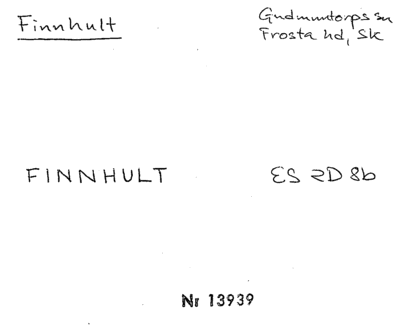 Finnhult
Gudmuntorps sn
Frosta hd, Sk
FINNHULT
ES 2D 8b
Nr 13939